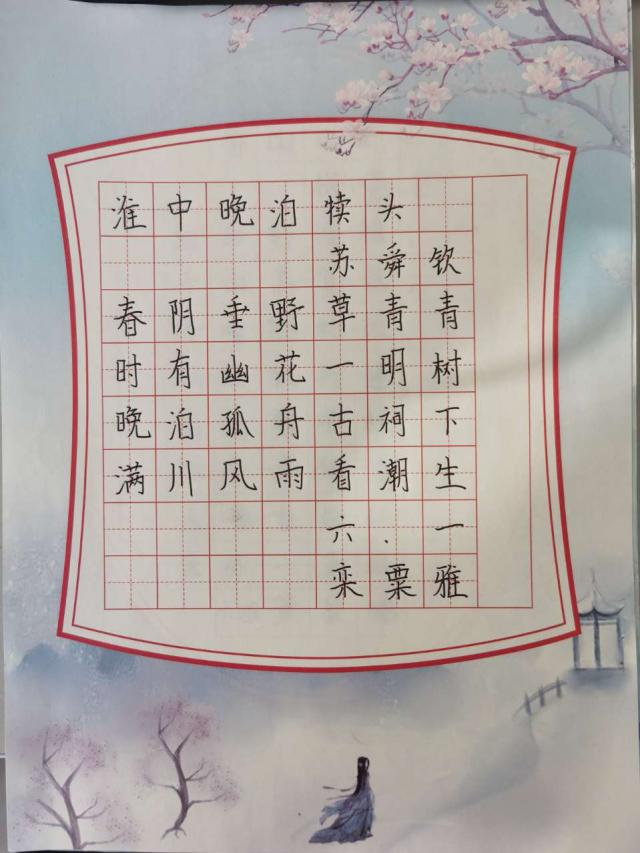 淮中晚泊犊头
苏舜钦
春阴垂野草青青
时有幽花一明树
晚泊孤舟古祠下
满川风雨看潮生
六.一
栾粟雅